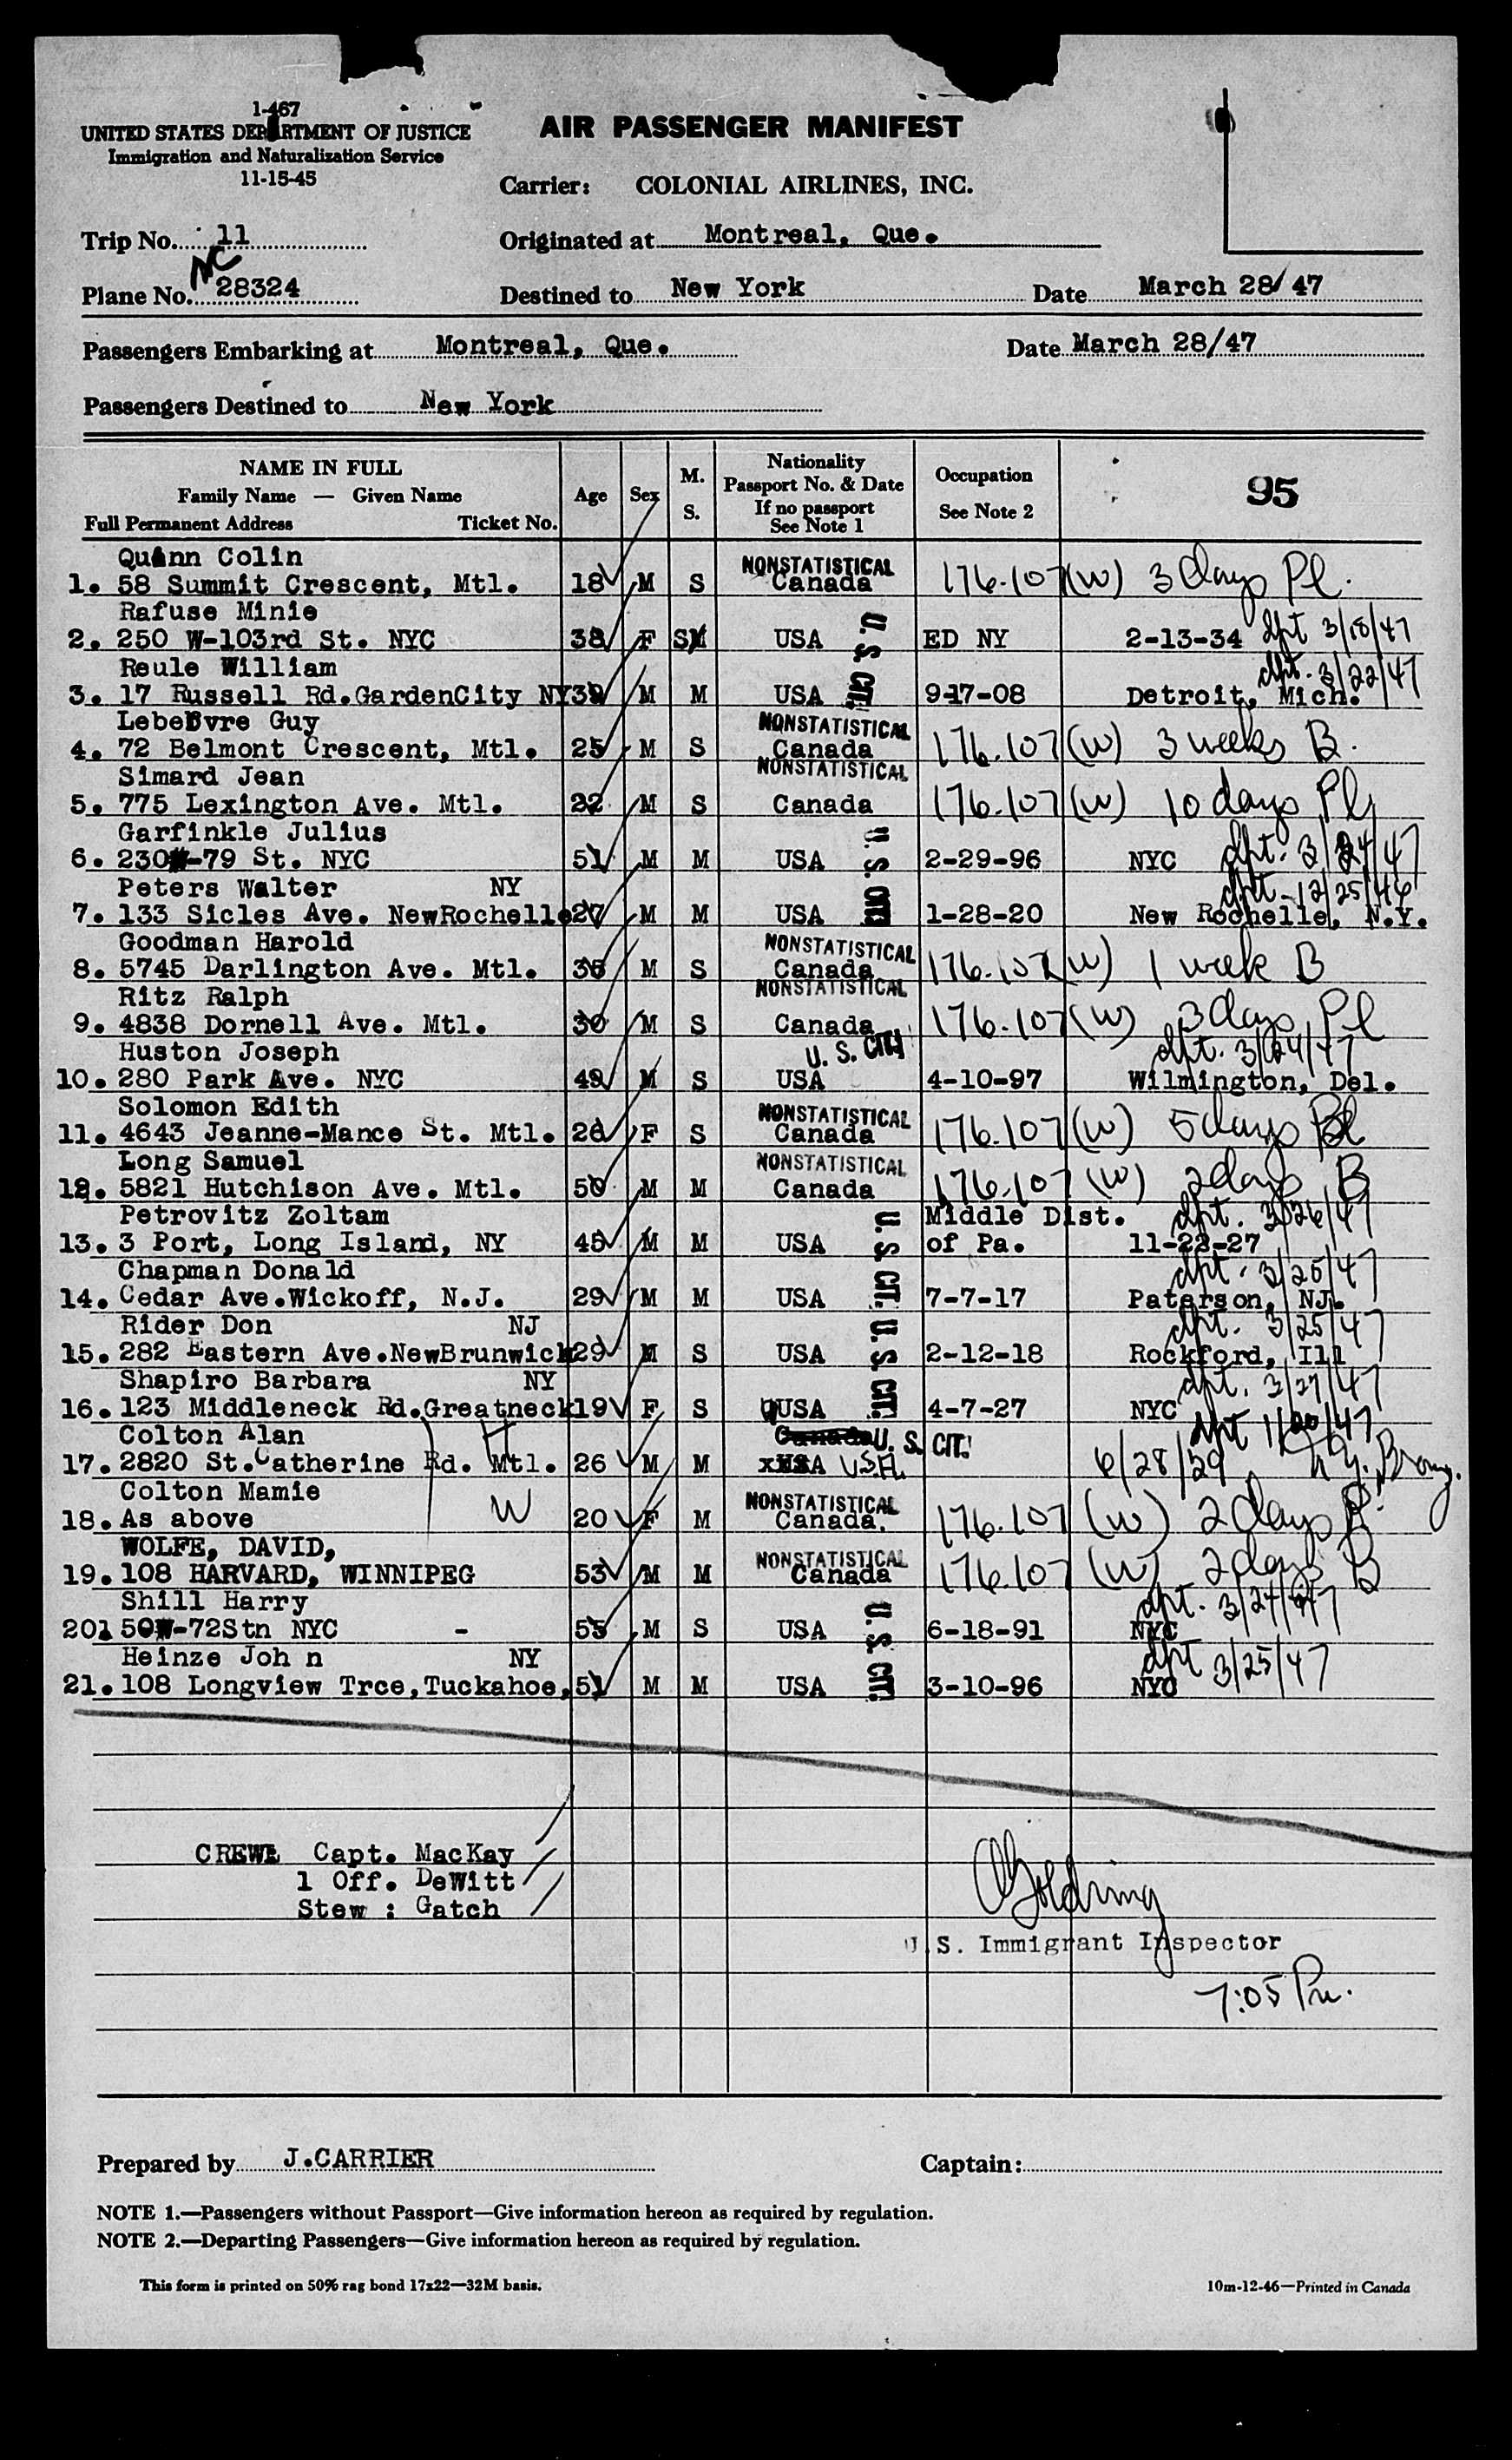 1-467
UNITED STATES DEPARTMENT OF JUSTICE
Immigration and Naturalization Service
11-15-45
AIR PASSENGER MANIFEST
Carrier: COLONIAL AIRLINES, INC.
Trip No. 11
Originated at Montreal, Que.
NC
Plane No. 28324
Destined to New York
Date March 28/47
Passengers Embarking at Montreal, Que.
Date March 28/47
Passengers Destined to New York
NAME IN FULL
Family Name — Given Name
Full Permanent Address Ticket No.
Age
Sex
M. S.
Nationality
Passport No. & Date
If no passport
See Note 1
Occupation
See Note 2
95
Quinn Colin NONSTATISTICAL
1. 58 Summit Crescent, Mtl. 18 M S Canada 176.107(W) 3 days Pl.
Rafuse Minie
2. 250 W-103rd St. NYC 38 F SM USA U.S. CIT. ED NY 2-13-34 dpt 3/18/47
Reule William dpt. 3/22/47
3. 17 Russell Rd.GardenCity NY 39 M M USA 9-17-08 Detroit, Mich.
Lebefvre Guy NONSTATISTICAL
4. 72 Belmont Crescent, Mtl. 25 M S Canada 176.107(W) 3 weeks B.
Simard Jean NONSTATISTICAL
5. 775 Lexington Ave. Mtl. 22 M S Canada 176.107(W) 10 days Pl
Garfinkle Julius
6. 230W-79 St. NYC 51 M M USA U.S. CIT. 2-29-96 NYC dpt. 3/24/47
Peters Walter NY dpt-12/25/46
7. 133 Sicles Ave. NewRochelle 27 M M USA 1-28-20 New Rochelle, N.Y.
Goodman Harold NONSTATISTICAL
8. 5745 Darlington Ave. Mtl. 36 M S Canada 176.107(W) 1 week B
Ritz Ralph NONSTATISTICAL
9. 4838 Dornell Ave. Mtl. 30 M S Canada 176.107(W) 3 days Pl
Huston Joseph U. S. CIT. dpt. 3/24/47
10. 280 Park Ave. NYC 49 M S USA 4-10-97 Wilmington, Del.
Solomon Edith NONSTATISTICAL
11. 4643 Jeanne-Mance St. Mtl. F S Canada 176.107(W) 5 days Pl
Long Samuel NONSTATISTICAL
12. 5821 Hutchison Ave. Mtl. 50 M M Canada 176.107(W) 2 days B
Petrovitz Zoltam Middle Dist. dpt. 3/26/47
13. 3 Port, Long Island, NY 45 M M USA U.S. CIT. of Pa. 11-22-27
Chapman Donald dpt. 3/25/47
14. Cedar Ave.Wickoff, N.J. 29 M M USA 7-7-17 Paterson, NJ.
Rider Don NJ dpt. 3/25/47
15. 282 Eastern Ave.NewBrunwick 29 M S USA U.S. CIT. 2-12-18 Rockford, Ill
Shapiro Barbara NY dpt. 3/27/47
16. 123 Middleneck Rd.Greatneck 19 F S USA 4-7-27 NYC
Colton Alan Canada U. S. CIT. dpt 1/20/47
17. 2820 St.Catherine Rd. Mtl. 26 M M xUSA USA 6/28/29 N.Y.
Colton Mamie W NONSTATISTICAL
18. As above 20 F M Canada. 176.107 (W) 2 days
WOLFE, DAVID, NONSTATISTICAL
19. 108 HARVARD, WINNIPEG 53 M M Canada 176.107 (W) 2 days B
Shill Harry dpt. 3/24/47
20. 50W-72Stn NYC - 55 M S USA U.S. CIT. 6-18-91 NYC
Heinze Joh n NY dpt 3/25/47
21. 108 Longview Trce,Tuckahoe, 51 M M USA 3-10-96 NYC
CREW: Capt. MacKay
1 Off. DeWitt
Stew : Gatch
Golding
U.S. Immigrant Inspector
7:05 Pm.
Prepared by J.CARRIER
Captain:
NOTE 1.—Passengers without Passport—Give information hereon as required by regulation.
NOTE 2.—Departing Passengers—Give information hereon as required by regulation.
This form is printed on 50% rag bond 17x22—32M basis.
10m-12-46—Printed in Canada